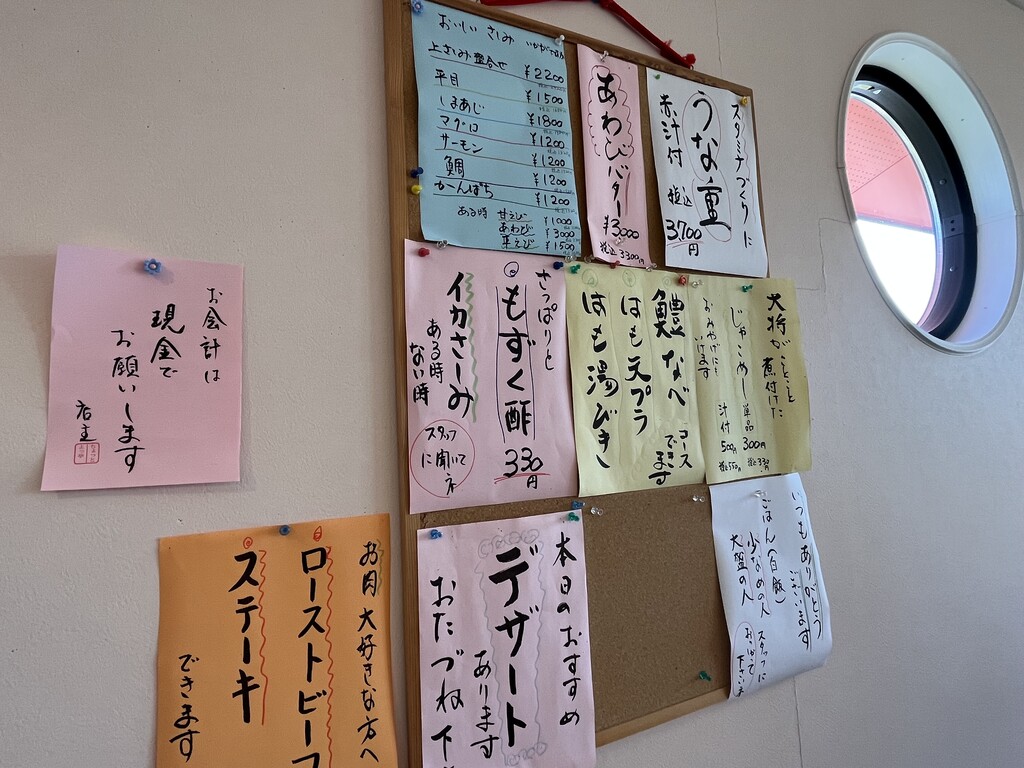 おいしい さしみ いかがですか
上さしみ盛合せ ¥2200
平目 ¥1500
しまあじ ¥1800
マグロ ¥1200
サーモン ¥1200
鯛 ¥1200
かんぱち ¥1200
ある時 甘えび ¥1000
あわび ¥3000
¥1500
あわびバター
¥3,000
税込3300円
スタミナづくりに
うな重
赤汁付 税込
3700円
さっぱりと
もずく酢 330円
イカさしみ
ある時
ない時
スタッフ
に聞いてネ
大将がことこと
煮付けた
じゃこめし 単品 300円 税込330
汁付 500円 税込550
おみやげにも
いけます
鱧なべ コース
できます
はも天プラ
はも湯びき
お会計は
現金で
お願いします
店主
お肉 大好きな方へ
ローストビーフ
ステーキ
できます
本日のおすすめ
デザート
あります
おたづね下
いつもありがとう
ございます
ごはん(白飯)
少なめの人
大盛の人
スタッフに
下さいませ